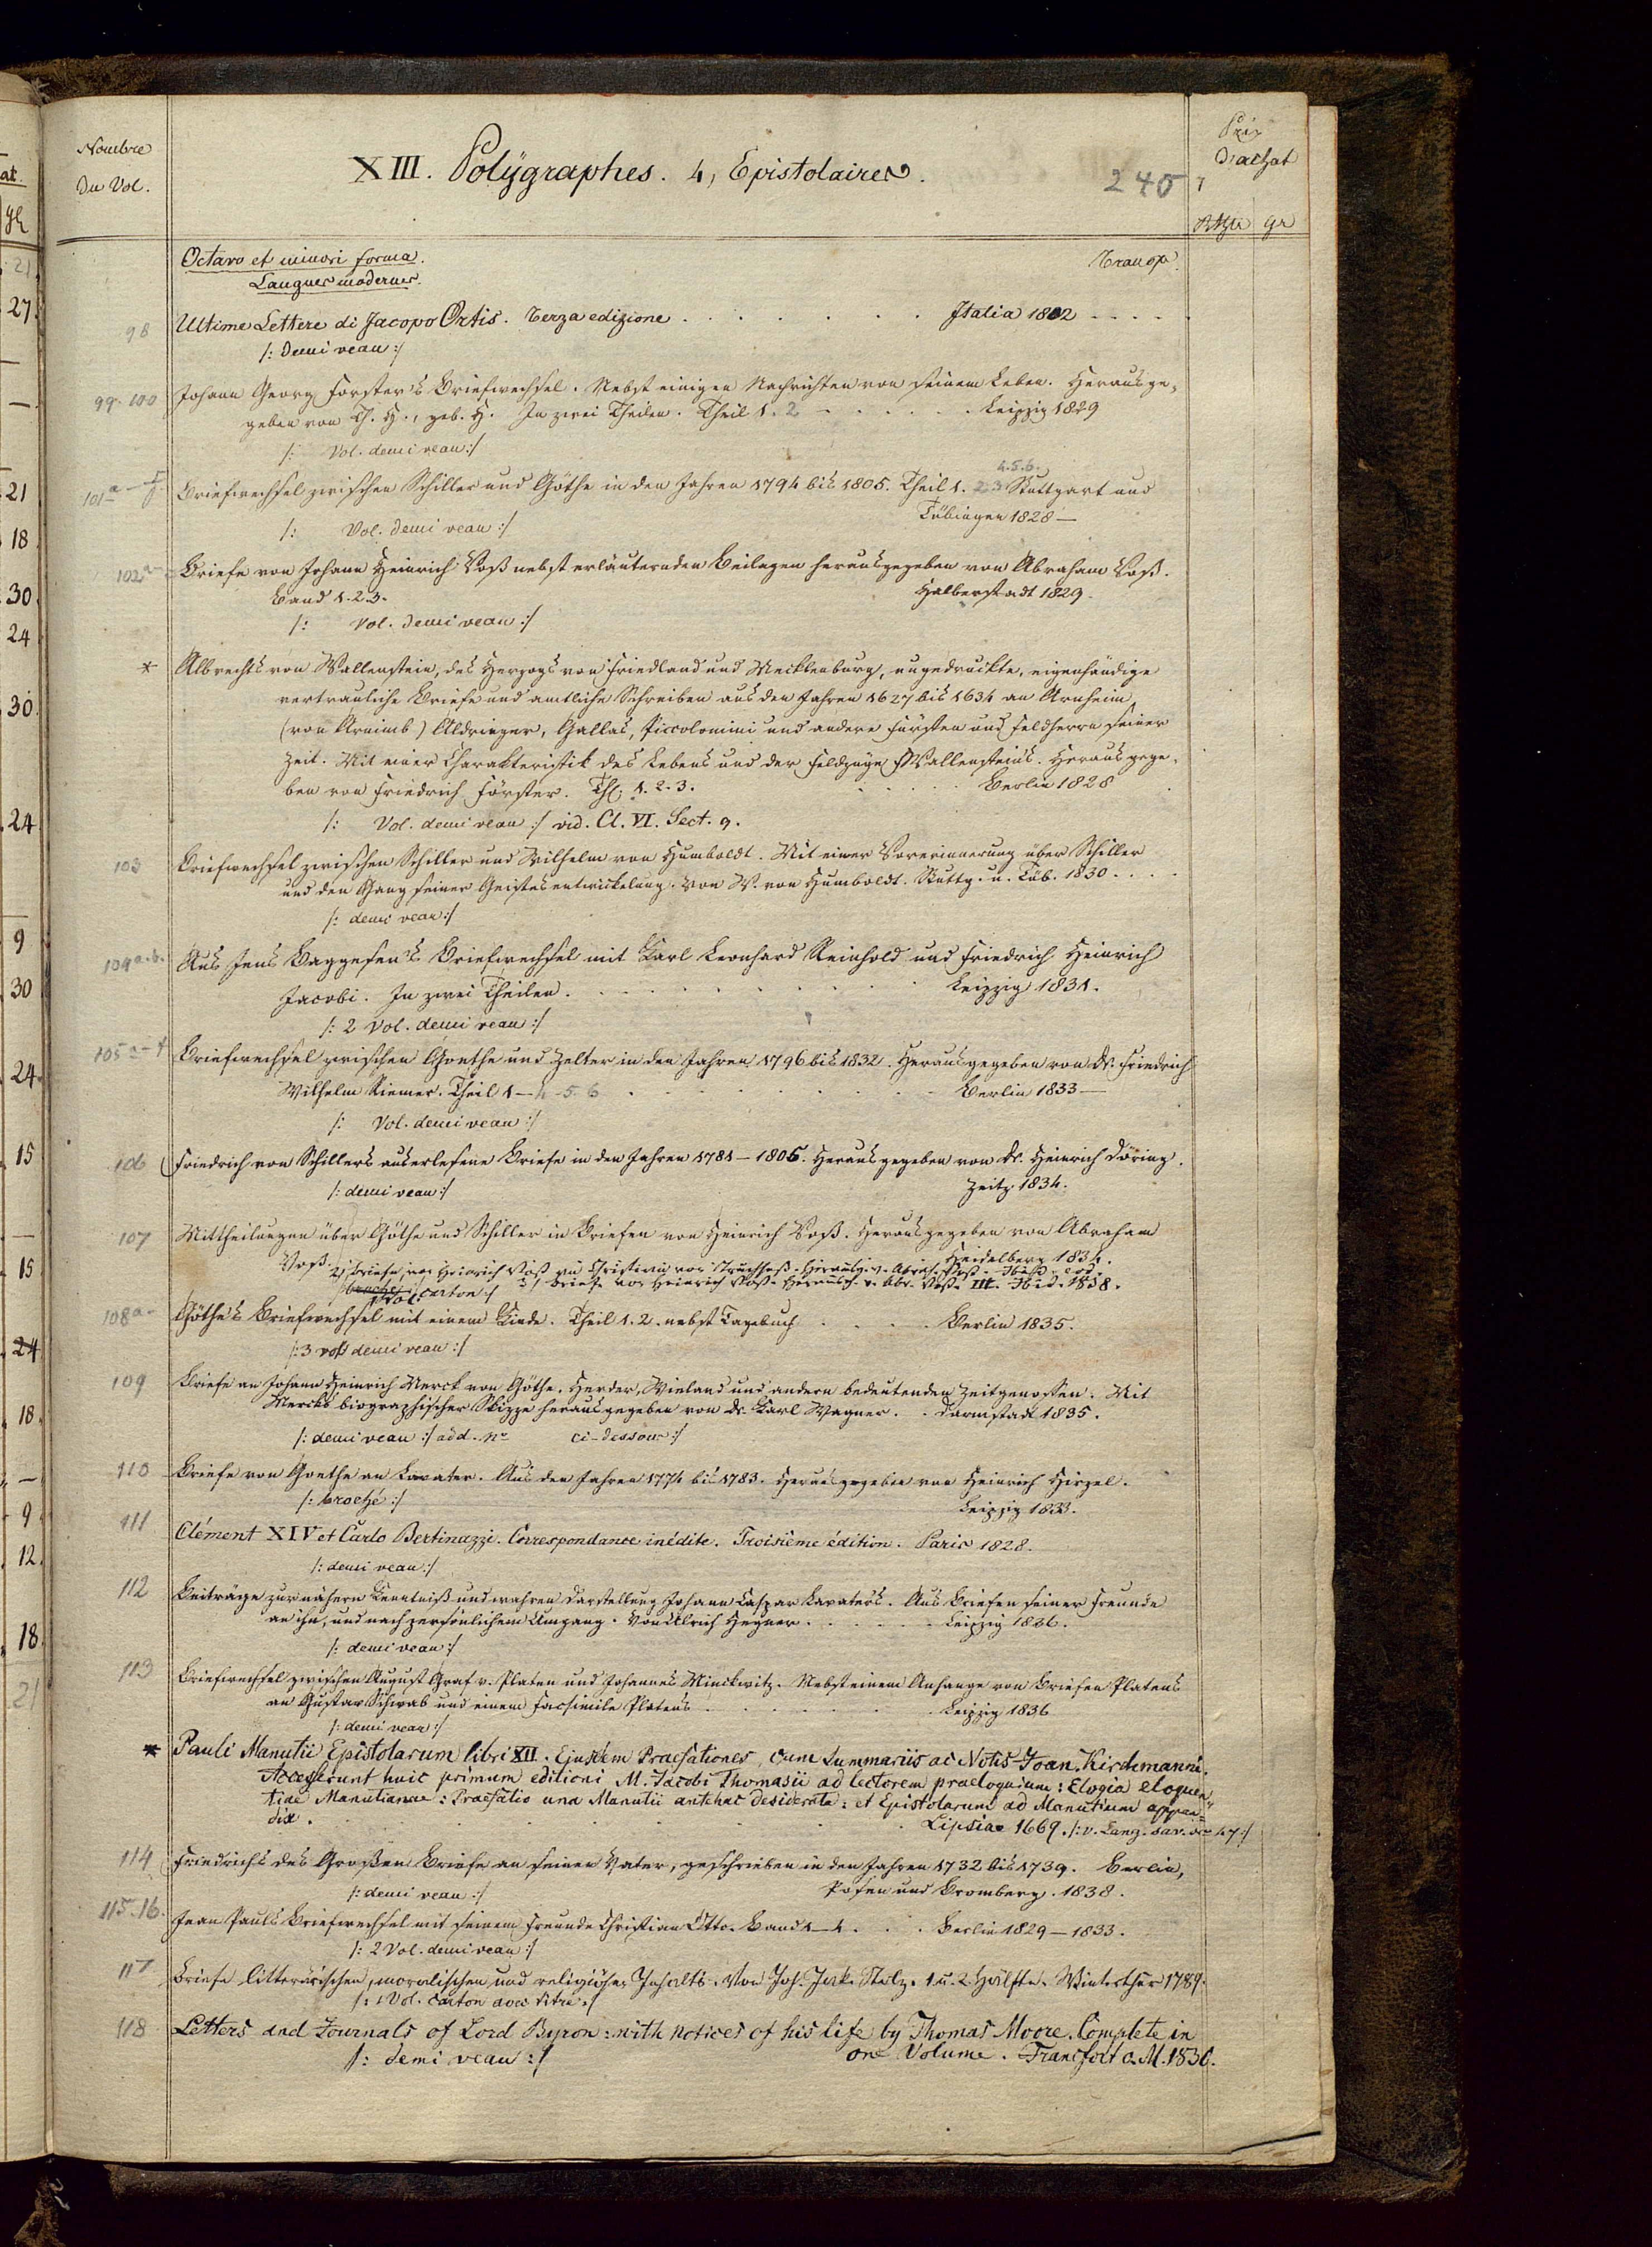 Nombre
du Vol.
XIII. Polÿgraphes. 4, Epistolaires.
245
Prix
d'achat
Rthlr gr
Octavo et minori forma.
Transp.
Langues modernes.
98 Ultime Lettere di Jacopo Ortis. Terza edizione . . . . . . . Italia 1802 . . . .
/: demi veau :/
99. 100 Johann Georg Forster's Briefwechsel. Nebst einigen Nachrichten von seinem Leben. Herausge-
geben von Th. H., geb. H. In zwei Theilen. Theil 1. 2 . . . . . . Leipzig 1829
/: Vol. demi veau :/
4.5.6.
101a-f. Briefwechsel zwischen Schiller und Göthe in den Jahren 1794 bis 1805. Theil 1. 2 3 Stuttgart und
Tübingen 1828 —
/: Vol. demi veau :/
102a- Briefe von Johann Heinrich Voß nebst erläuternden Beilagen herausgegeben von Abraham Voß.
Band 1. 2. 3. Halberstadt 1829.
/: Vol. demi veau :/
* Albrechts von Wallenstein, des Herzogs von Friedland und Mecklenburg, ungedruckte, eigenhändige
vertrauliche Briefe und amtliche Schreiben aus den Jahren 1627 bis 1634 an Arnheim,
(von Arnimb) Aldringer, Gallas, Piccolomini und andere Fürsten und Feldherrn seiner
Zeit. Mit einer Charakteristik des Lebens und der Feldzüge Wallensteins. Herausgege-
ben von Friedrich Förster. Th. 1. 2. 3. . . . . Berlin 1828
/: Vol. demi veau :/ vid. Cl. VI. Sect. 9.
103 Briefwechsel zwischen Schiller und Wilhelm von Humboldt. Mit einer Vorerinnerung über Schiller
und den Gang seiner Geistesentwickelung. Von W. von Humboldt. Stuttg. u. Tüb. 1830 . . . .
/: demi veau :/
104 a.b. Aus Jens Baggesen's Briefwechsel mit Karl Leonhard Reinhold und Friedrich Heinrich
Jacobi. In zwei Theilen. . . . . . . . . . Leipzig 1831.
/: 2 Vol. demi veau :/
105 a-f Briefwechsel zwischen Goethe und Zelter in den Jahren 1796 bis 1832. Herausgegeben von Dr. Friedrich
Wilhelm Riemer. Theil 1 — 4 - 5. 6 . . . . . . . Berlin 1833 —
/: Vol. demi veau :/
106 Friedrich von Schillers auserlesene Briefe in den Jahren 1781 — 1805. Herausgegeben von Dr. Heinrich Döring.
/: demi veau :/ Zeitz 1834.
107 Mittheilungen über Göthe und Schiller in Briefen von Heinrich Voß. Herausgegeben von Abraham
Voß. Heidelberg 1834.
2/ Briefe von Heinrich Voß an Christian von Truchseß. Herausg. v. Abrah. Voß. Ibid. eod.
3/ Briefe von Heinrich Voß. Herausg. v. Abr. Voß. III. Ibid. 1838.
/: broché 1 Vol. carton :/
108a- Göthe's Briefwechsel mit einem Kinde. Theil 1. 2. nebst Tagebuch . . . . Berlin 1835.
/: 3 vols demi veau :/
109 Briefe an Johann Heinrich Merck von Göthe, Herder, Wieland und andern bedeutenden Zeitgenossen. Mit
Mercks biographischer Skizze herausgegeben von Dr. Karl Wagner. . Darmstadt 1835.
/: demi veau :/ add. No ci-dessous :/
110 Briefe von Goethe an Lavater. Aus den Jahren 1774 bis 1783. Herausgegeben von Heinrich Hirzel.
/: broché :/ Leipzig 1833.
111 Clément XIV et Carlo Bertinazzi. Correspondance inédite. Troisième édition. Paris 1828.
/: demi veau :/
112 Beiträge zur nähern Kenntniß und wahren Darstellung Johann Caspar Lavater's. Aus Briefen seiner Freunde
an ihn, und nach persönlichem Umgang. Von Ulrich Hegner. . . . . . Leipzig 1836.
/: demi veau :/
113 Briefwechsel zwischen August Graf v. Platen und Johannes Minckwitz. Nebst einem Anhange von Briefen Platens
an Gustav Schwab und einem Facsimile Platens . . . . . . . Leipzig 1836
/: demi veau :/
* Pauli Manutii Epistolarum libri XII. Ejusdem Praefationes, cum Summariis ac Notis Joan. Kirchmanni.
Accesserunt huic primum editioni M. Jacobi Thomasii ad lectorem praeloquium: Elogia eloquen-
tiae Manutianae: Praefatio una Manutii antehac desiderata: et Epistolarum ad Manutium appen-
dix. . . . . . . . . Lipsiae 1669. /: v. Lang. sav. No 47 :/
114 Friedrichs des Großen Briefe an seinen Vater, geschrieben in den Jahren 1732 bis 1739. Berlin,
/: demi veau :/ Posen und Bromberg. 1838.
115.16. Jean Pauls Briefwechsel mit seinem Freunde Christian Otto. Band 1—4 . . . Berlin 1829 — 1833.
/: 2 Vol. demi veau :/
117 Briefe litterärischen, moralischen und religiösen Inhalts. Von Joh. Jak. Stolz. 1. u. 2. Hälfte. Winterthur 1789.
/: 1 Vol. carton avec titre :/
118 Letters and Journals of Lord Byron: with notices of his life by Thomas Moore. Complete in
/: demi veau :/ one Volume. Francfort o. M. 1830.
at.
gl
21
27
21
18
30
24
30
24
9
30
24
15
15
24
18
9
12
18
21